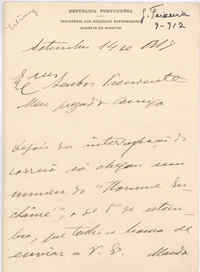 REPUBLICA PORTUGUÊSA
MINISTERIO DOS NEGOCIOS ESTRANGEIROS
GABINETE DO MINISTRO
J. Teixeira
9-912
Setembro 14 de 1912
Senhor Presidente
Meu prezado amigo
Depois da interrupção do
correio só chegou um
numero do "Homme en-
chainé", o de 5 de setem-
bro, que tenho a honra de
enviar a V. Ex.